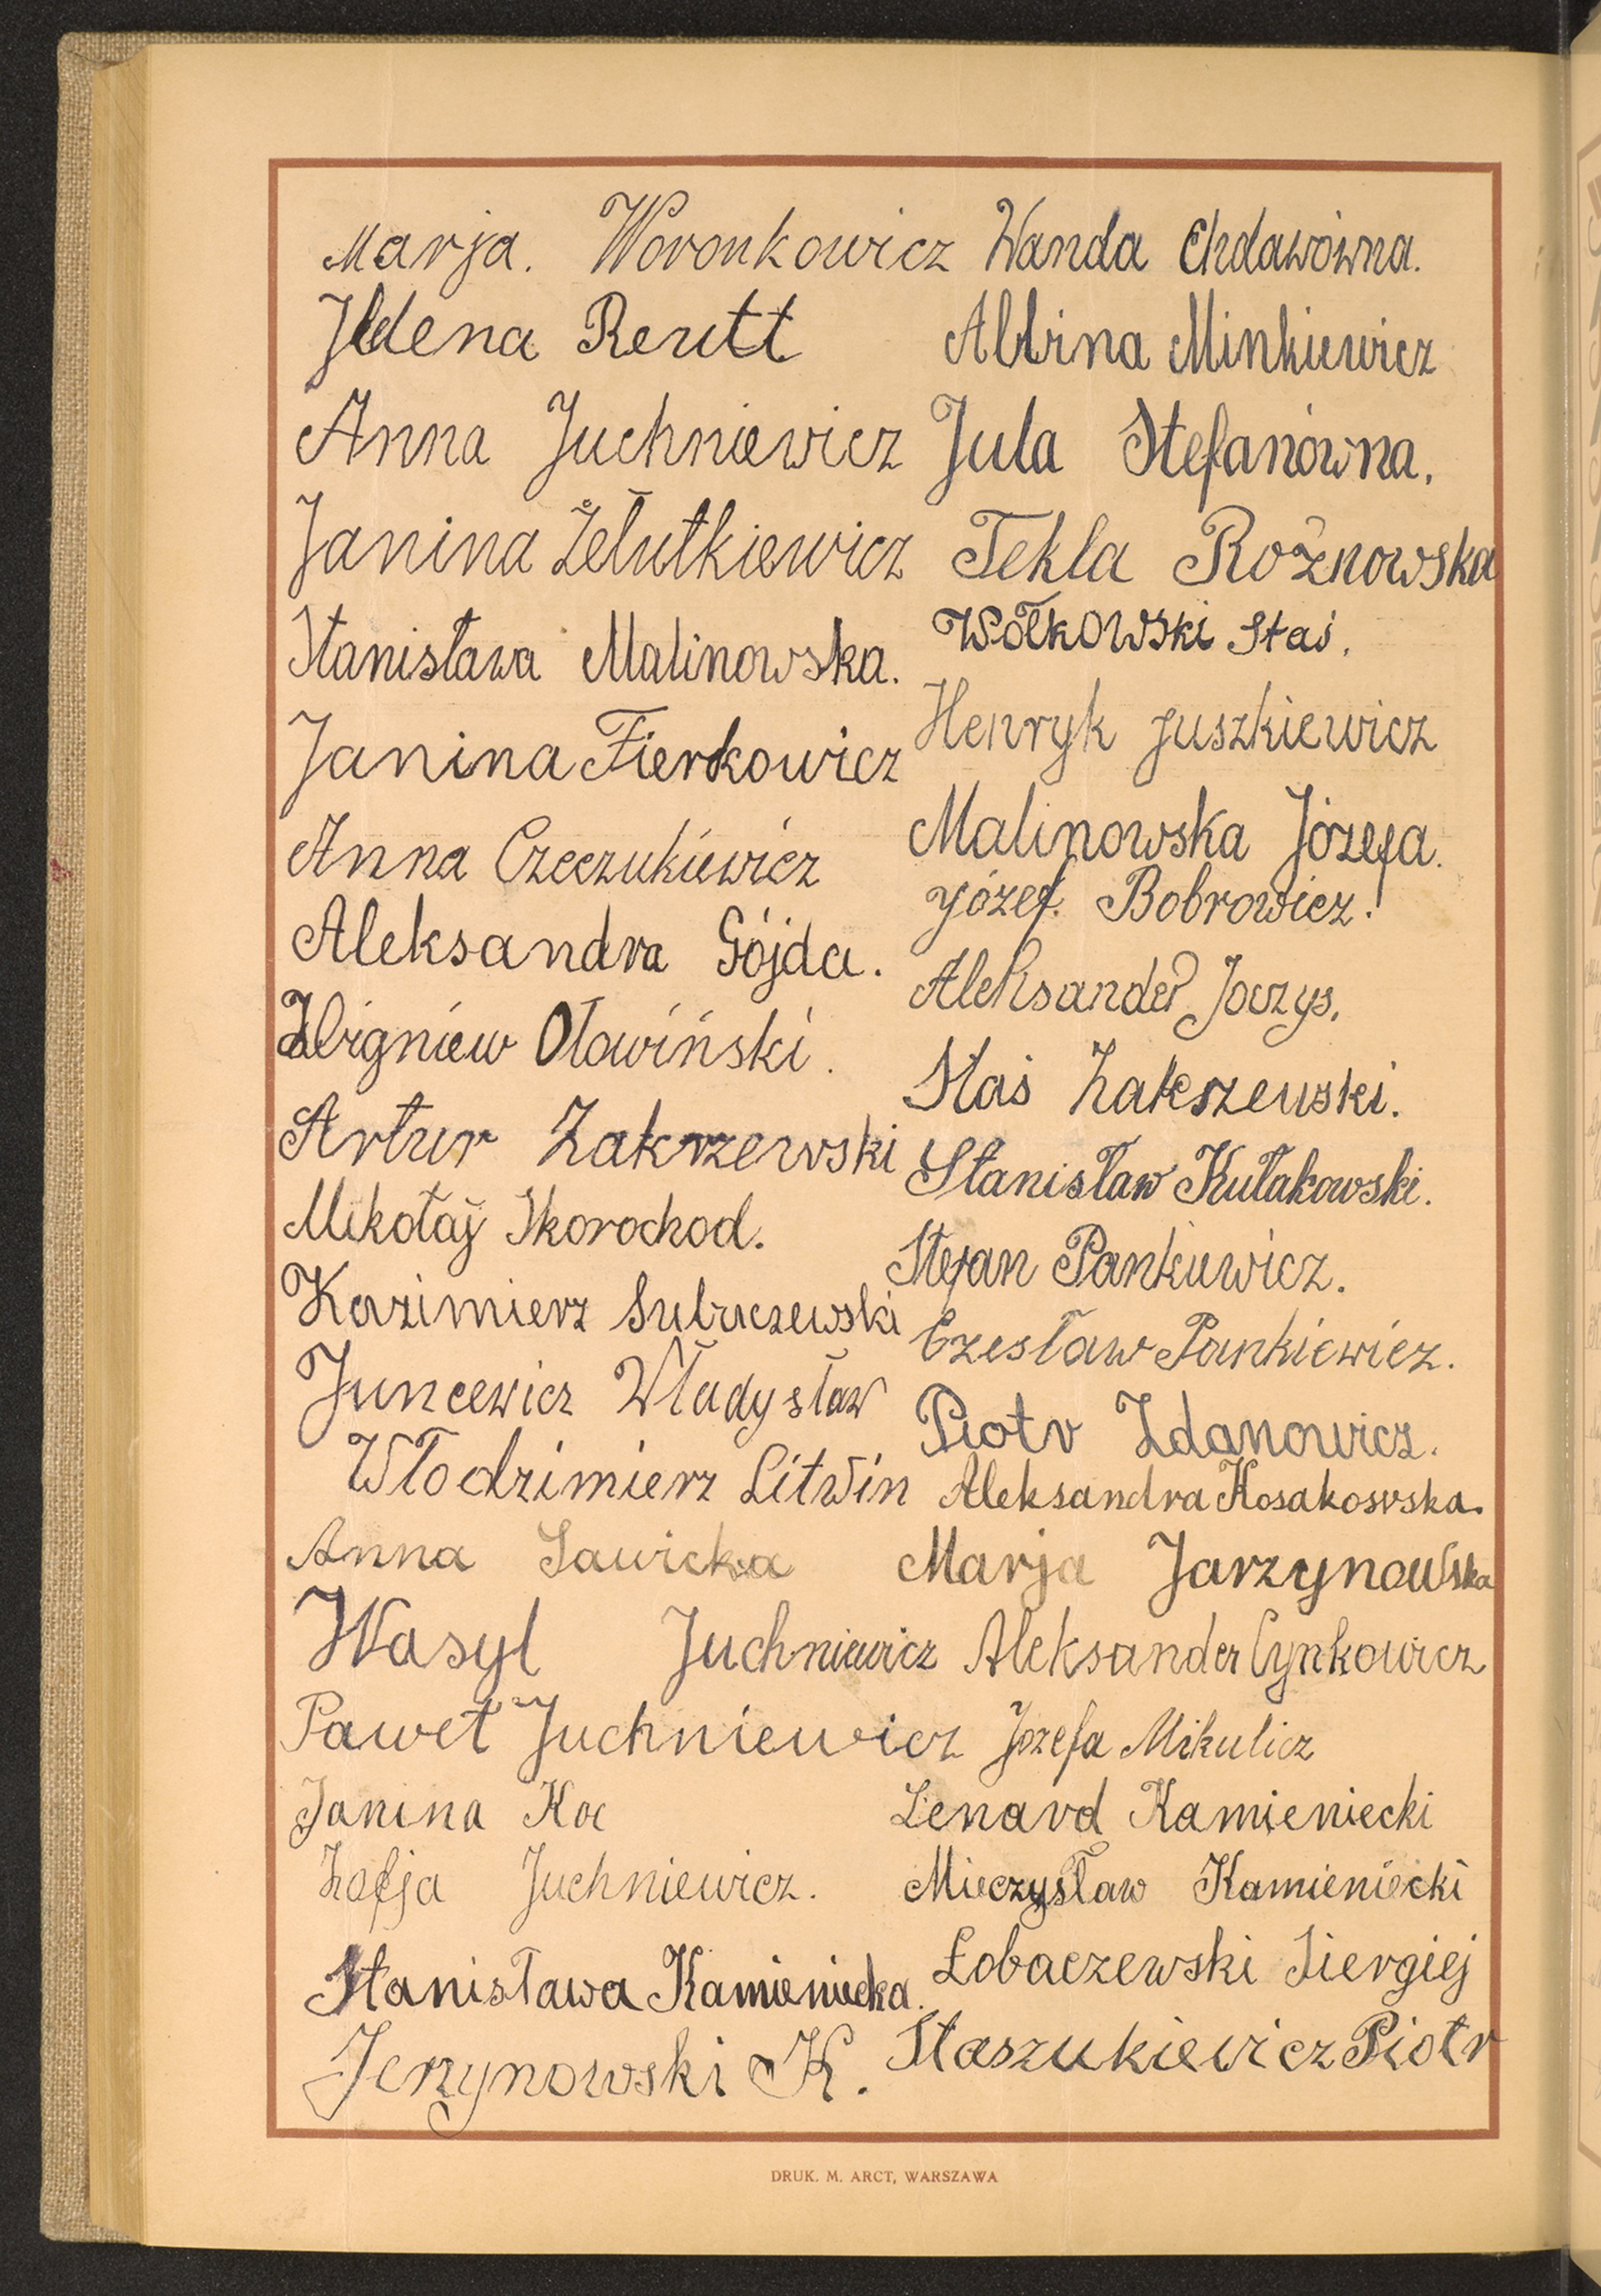 Marja. Woronkowicz
Helena Reutt
Anna Juchniewicz
Janina Żełutkiewicz
Stanisława Malinowska.
Janina Fierkowicz
Anna Czeczukiewicz
Aleksandra Gójda.
Zbigniew Oławiński.
Artur Zakrzewski
Mikołaj Skorochod.
Kazimierz Subuczewski
Juncewicz Władysław
Włodzimierz Litwin
Anna Sawicka
Wasyl Juchniewicz
Paweł Juchniewicz
Janina Koc
Zofja Juchniewicz.
Stanisława Kamieniecka.
Jerzynowski K.
Wanda Chdawówna.
Albina Minkiewicz
Jula Stefanówna.
Tekla Rożnowska
Wółkowski Staś.
Henryk Juszkiewicz
Malinowska Józefa.
Józef. Bobrowicz.
Aleksander Joczys.
Staś Zakszewski.
Stanisław Kułakowski.
Stefan Pankiewicz.
Czesław Pankiewicz.
Piotr Zdanowicz.
Aleksandra Kosakowska.
Marja Jarzynowska
Aleksander Cynkowicz
Józefa Mikulicz
Lenard Kamieniecki
Mieczysław Kamieniecki
Łobaczewski Siergiej
Staszukiewicz Piotr
DRUK. M. ARCT, WARSZAWA